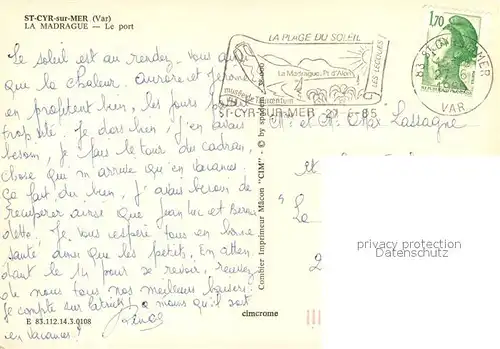 ST-CYR-sur-MER (Var)
LA MADRAGUE — Le port
Le soleil est au rendez-vous ainsi
que la chaleur. Aurore et Jérome
en profitent bien, les jours passent
trop vite. Je dors bien, j'en avais
besoin, je fais le tour du cadran,
chose que m'arrive qu'en vacances.
Ça fait du bien, j'avais besoin de
récupérer ainsi que Jean Luc et Berna
dette. Je vous espère tous en bonne
santé ainsi que les petits. En atten
dant le 14 pour se revoir, recevez
de nous tous nos meilleurs baisers.
Je compte sur Patrick à moins qu'il soit
en vacances!
E 83.112.14.3.0108
Combier Imprimeur Mâcon "CIM" - © by
cimcrome
LA PLAGE DU SOLEIL
La Madrague, Pt d'Alon
LES LECQUES
ST-CYR-SUR-MER 27-6-85
1,70
83 ST CYR S MER
VAR
M. et Mme Max Lassagne
privacy protection
Datenschutz